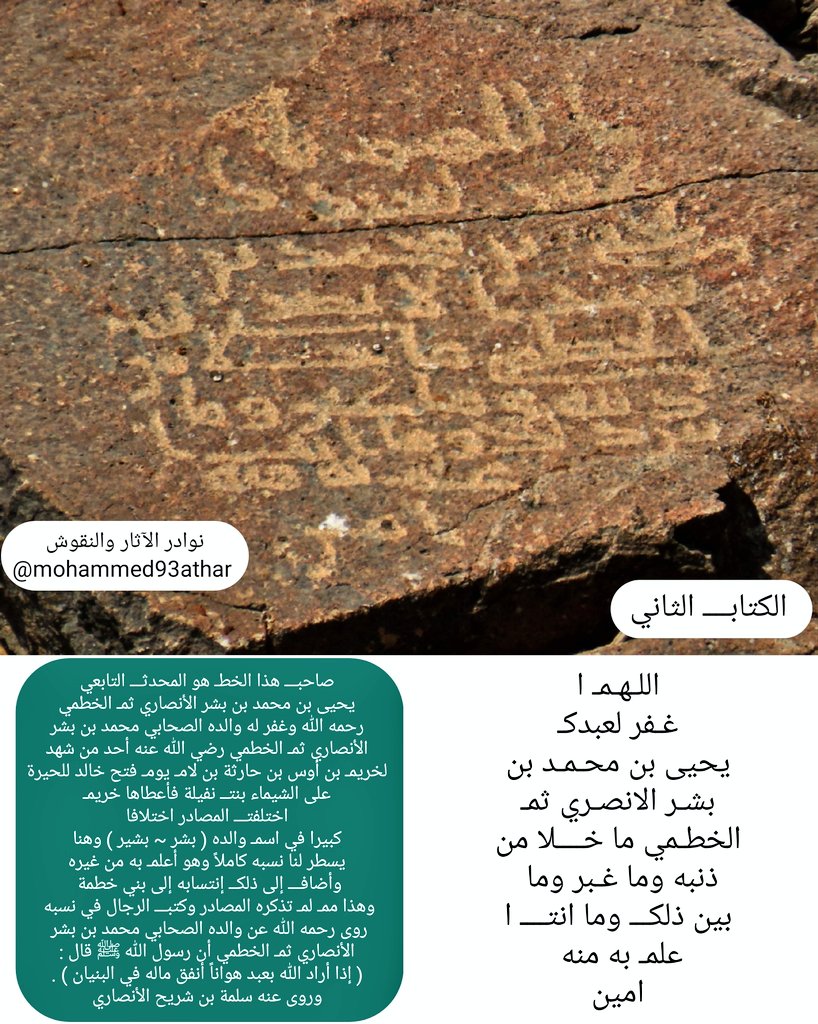 نوادر الآثار والنقوش
@mohammed93athar
الكتابـــ الثاني
اللـهـمـ ا
غـفر لعبدكـ
يحيى بن محـمـد بن
بشـر الانصـري ثمـ
الخطـمي ما خــــلا من
ذنبه وما غـبر وما
بين ذلكـــ وما انتــــ ا
علمـ به منه
امين
صاحبـــ هذا الخطـ هو المحدثـــ التابعي
يحيى بن محمد بن بشر الأنصاري ثمـ الخطمي
رحمه الله وغفر له والده الصحابي محمد بن بشر
الأنصاري ثمـ الخطمي رضي الله عنه أحد من شهد
لخريمـ بن أوس بن حارثة بن لامـ يومـ فتح خالد للحيرة
على الشيماء بنتـــ نفيلة فأعطاها خريمـ
اختلفتـــ المصادر اختلافا
كبيرا في اسمـ والده ( بشر ~ بشير ) وهنا
يسطر لنا نسبه كاملاً وهو أعلمـ به من غيره
وأضافـــ إلى ذلكـــ إنتسابه إلى بني خطمة
وهذا ممـ لمـ تذكره المصادر وكتبـــ الرجال في نسبه
روى رحمه الله عن والده الصحابي محمد بن بشر
الأنصاري ثمـ الخطمي أن رسول الله ﷺ قال :
( إذا أراد الله بعبد هواناً أنفق ماله في البنيان ) .
وروى عنه سلمة بن شريح الأنصاري